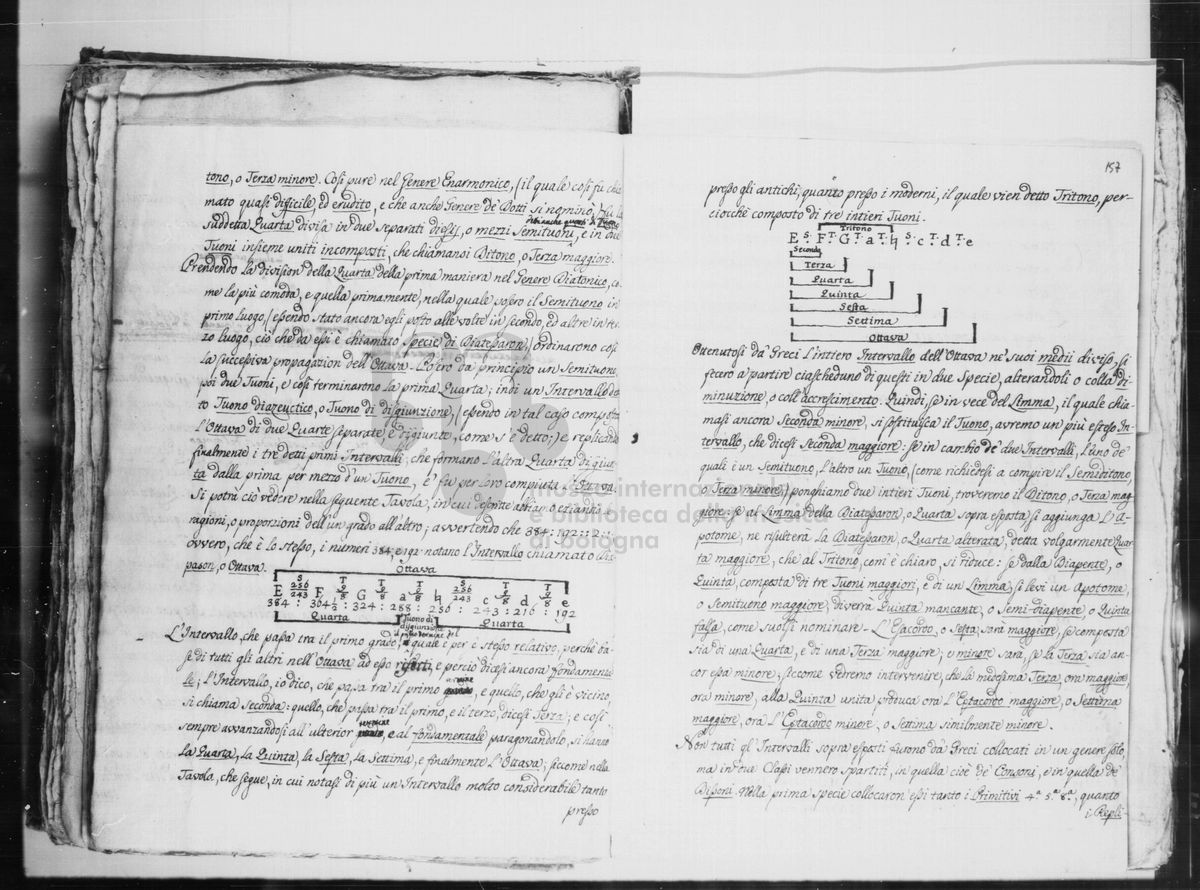 tono, o Terza minore. Così pure nel Genere Enarmonico, (il quale così fù chia
mato quasi difficile ed erudito, e che anche Genere de' Dotti si nominò)
suddetta Quarta divisa in due separati diesij, o mezzi Semituoni, e in due
Tuoni insieme uniti incomposti, che chiamansi Ditono, o Terza maggiore.
Prendendo la division della Quarta della prima maniera nel Genere Diatonico, co
me la più comoda, e quella primamente, nella quale posero il Semituono in
primo luogo, (essendo stato ancora egli posto alle volte in secondo, ed altre in ter
zo luogo, ciò che da essi è chiamato Specie di Diatessaron,) ordinarono così
la successiva propagazion dell'Ottava. Posero da principio un Semituono
poi due Tuoni, e così terminarono la prima Quarta; indi un Intervallo de
to Tuono diazeuctico, o Tuono di disgiunzione, (essendo in tal caso composta
l'Ottava di due Quarte separate, e disgiunte, come s'è detto;) e replicando
finalmente i tre detti primi Intervalli, che formano l'altra Quarta disgiun
ta dalla prima per mezzo d'un Tuono, e' fu per loro compiuta l'Ottava.
Si potrà ciò vedere nella seguente Tavola, in cui espresse abbiam etiandio
ragioni, o proporzioni dell'un grado all'altro; avvertendo che 384:192::2:1.
ovvero, che è lo stesso, i numeri 384, e 192 notano l'Intervallo chiamato Dia
pason, o Ottava.
Ottava
S T T T S T T
256/243 9/8 9/8 9/8 256/243 9/8 9/8
E F G a ♮ c d e
384 : 364½ : 324 : 288 : 256 : 243 : 216 : 192
Quarta Tuono di disgiunzione Quarta
L'Intervallo, che passa tra il primo grado, il quale è per sè stesso relativo, perchè ba
se di tutti gli altri nell'Ottava ad esso riferti, e perciò dicesi ancora fondamenta
le; l'Intervallo, io dico, che passa tra il primo, e quello, che gli è vicino,
si chiama Seconda: quello, che passa tra il primo, e il terzo, dicesi Terza; e così
sempre avvanzandosi all'ulterior, e al fondamentale paragonandolo, si hanno
la Quarta, la Quinta, la Sesta, la Settima, e finalmente l'Ottava; siccome nella
Tavola, che segue, in cui notasi di più un Intervallo molto considerabile tanto
presso
157
presso gli antichi, quanto presso i moderni, il quale vien detto Tritono, per-
ciocchè composto di tre intieri Tuoni.
Tritono
E S. F T. G T. a T. ♮ S. c T. d T. e
Seconda
Terza
Quarta
Quinta
Sesta
Settima
Ottava
Ottenutosi da' Greci l'intiero Intervallo dell'Ottava ne' suoi medii diviso, si
fecero a partire ciascheduno di questi in due Specie, alterandoli o colla di-
minuzione, o coll'accrescimento. Quindi, se in vece del Limma, il quale chia-
masi ancora Seconda minore, si sostituisca il Tuono, avremo un più esteso In-
tervallo, che dicesi Seconda maggiore: se in cambio de' due Intervalli, l'uno de'
quali è un Semituono, l'altro un Tuono, (come richiedesi a compire il Semiditono,
o Terza minore,) ponghiamo due intieri Tuoni, troveremo il Ditono, o Terza mag
giore: se al Limma della Diatessaron, o Quarta sopra esposta si aggiunga l'A-
potome, ne risulterà la Diatessaron, o Quarta alterata, detta volgarmente Quar
ta maggiore, che al Tritono, com'è chiaro, si riduce: se dalla Diapente, o
Quinta, composta di tre Tuoni maggiori, e di un Limma, si levi un Apotome,
o Semituono maggiore, diverrà Quinta mancante, o Semi-diapente, o Quinta
falsa, come suolsi nominare. L'Esacordo, o Sesta, sarà maggiore, se composta
sia di una Quarta, e di una Terza maggiore; e minore sarà, se la Terza sia an-
cor essa minore; siccome vedremo intervenire, che la medesima Terza, ora maggiore,
ora minore, alla Quinta unita produca ora l'Eptacordo maggiore, o Settima
maggiore, ora l'Eptacordo minore, o Settima similmente minore.
Non tutti gl'Intervalli sopra esposti furono da' Greci collocati in un genere solo,
ma in due Classi vennero spartiti, in quella cioè de' Consoni, e in quella de'
Dissoni. Nella prima specie collocaron essi tanto i Primitivi 4.ª 5.ª 8.ª, quanto
i Repli-